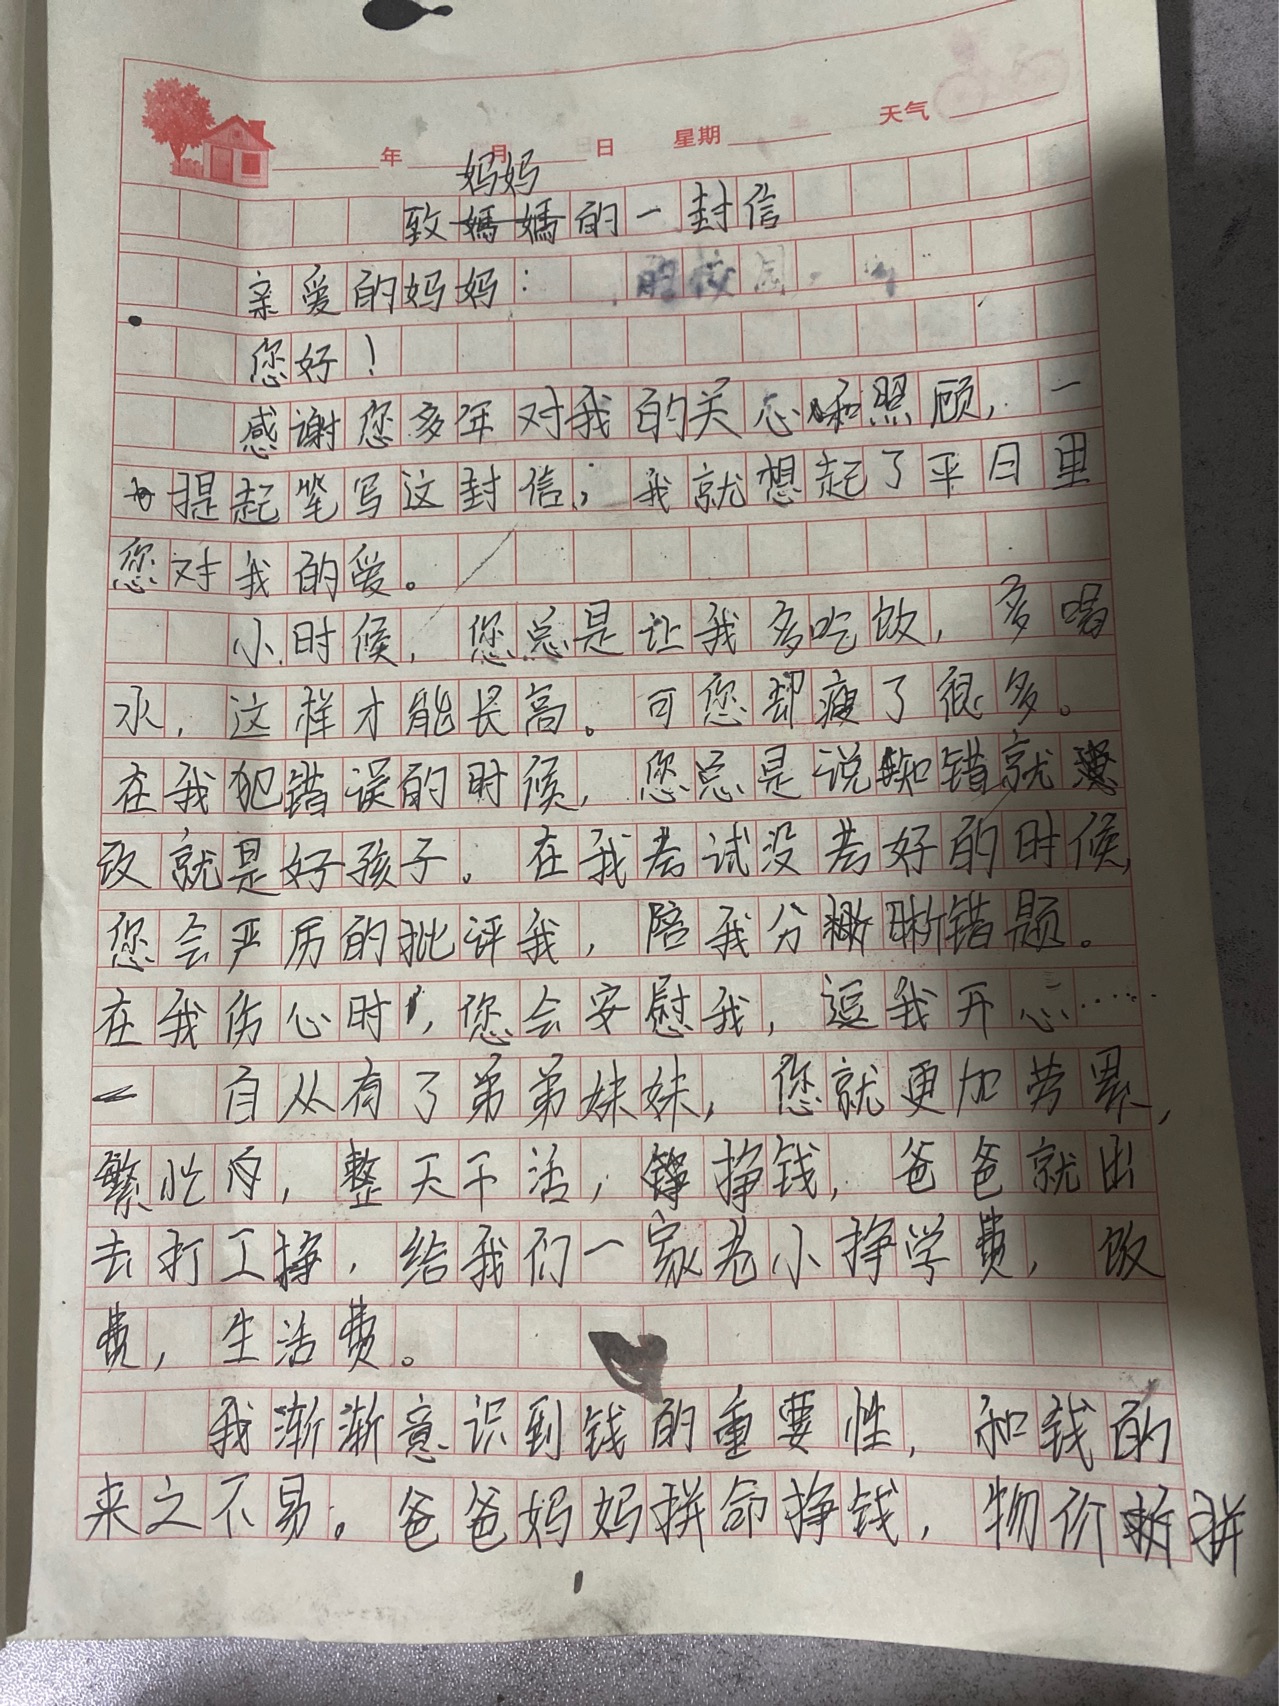 年 月 日 星期 天气
妈妈
致媽媽的一封信
亲爱的妈妈：
您好！
感谢您多年对我的关心和照顾，一
提起笔写这封信，我就想起了平日里
您对我的爱。
小时候，您总是让我多吃饭，多喝
水，这样才能长高。可您却瘦了很多。
在我犯错误的时候，您总是说知错就
改就是好孩子。在我考试没考好的时候，
您会严厉的批评我，陪我分晰错题。
在我伤心时，您会安慰我，逗我开心……
自从有了弟弟妹妹，您就更加劳累，
繁忙，整天干活，挣钱，爸爸就出
去打工挣，给我们一家老小挣学费，饭
费，生活费。
我渐渐意识到钱的重要性，和钱的
来之不易。爸爸妈妈拼命挣钱，物价拼